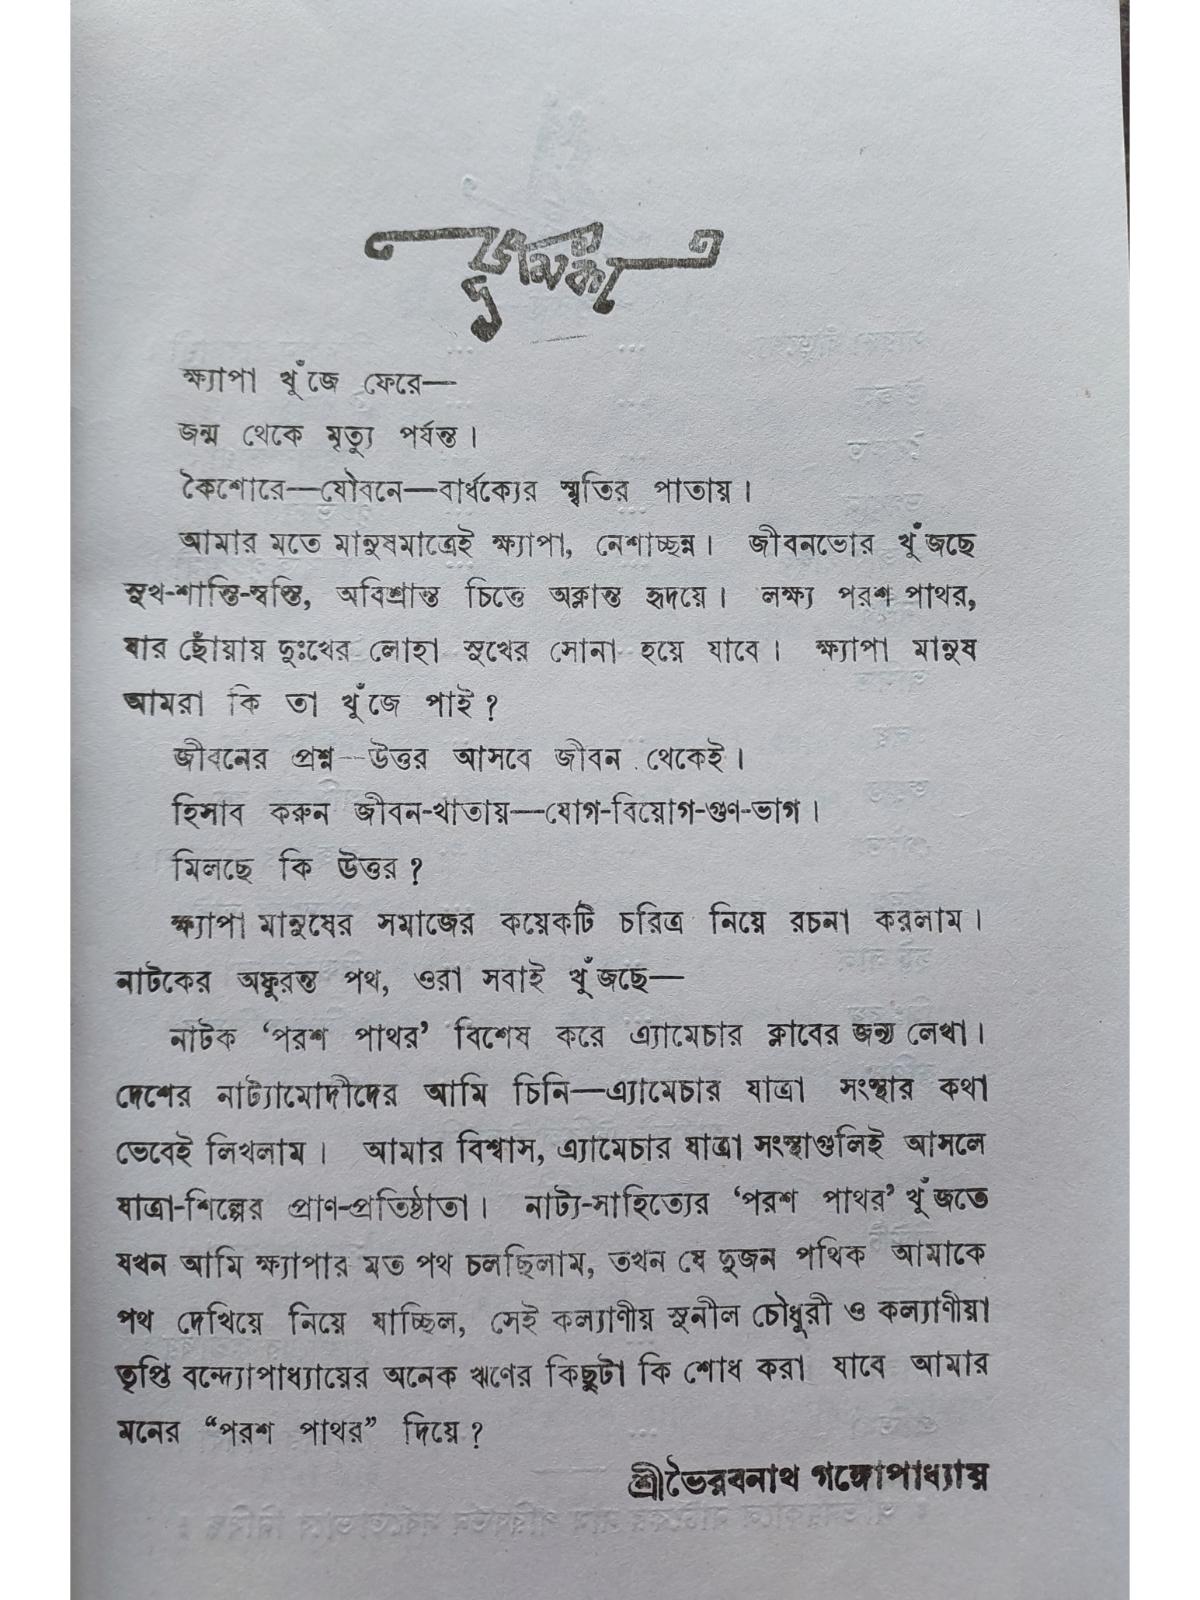 ভূমিকা
ক্ষ্যাপা খুঁজে ফেরে—
জন্ম থেকে মৃত্যু পর্যন্ত।
কৈশোরে—যৌবনে—বার্ধক্যের স্মৃতির পাতায়।
আমার মতে মানুষমাত্রেই ক্ষ্যাপা, নেশাচ্ছন্ন। জীবনভোর খুঁজছে
সুখ-শান্তি-স্বস্তি, অবিশ্রান্ত চিত্তে অক্লান্ত হৃদয়ে। লক্ষ্য পরশ পাথর,
যার ছোঁয়ায় দুঃখের লোহা সুখের সোনা হয়ে যাবে। ক্ষ্যাপা মানুষ
আমরা কি তা খুঁজে পাই?
জীবনের প্রশ্ন—উত্তর আসবে জীবন থেকেই।
হিসাব করুন জীবন-খাতায়—যোগ-বিয়োগ-গুণ-ভাগ।
মিলছে কি উত্তর?
ক্ষ্যাপা মানুষের সমাজের কয়েকটি চরিত্র নিয়ে রচনা করলাম।
নাটকের অফুরন্ত পথ, ওরা সবাই খুঁজছে—
নাটক ‘পরশ পাথর’ বিশেষ করে এ্যামেচার ক্লাবের জন্য লেখা।
দেশের নাট্যামোদীদের আমি চিনি—এ্যামেচার যাত্রা সংস্থার কথা
ভেবেই লিখলাম। আমার বিশ্বাস, এ্যামেচার যাত্রা সংস্থাগুলিই আসলে
যাত্রা-শিল্পের প্রাণ-প্রতিষ্ঠাতা। নাট্য-সাহিত্যের ‘পরশ পাথর’ খুঁজতে
যখন আমি ক্ষ্যাপার মত পথ চলছিলাম, তখন যে দুজন পথিক আমাকে
পথ দেখিয়ে নিয়ে যাচ্ছিল, সেই কল্যাণীয় সুনীল চৌধুরী ও কল্যাণীয়া
তৃপ্তি বন্দ্যোপাধ্যায়ের অনেক ঋণের কিছুটা কি শোধ করা যাবে আমার
মনের “পরশ পাথর” দিয়ে?
শ্রীভৈরবনাথ গঙ্গোপাধ্যায়